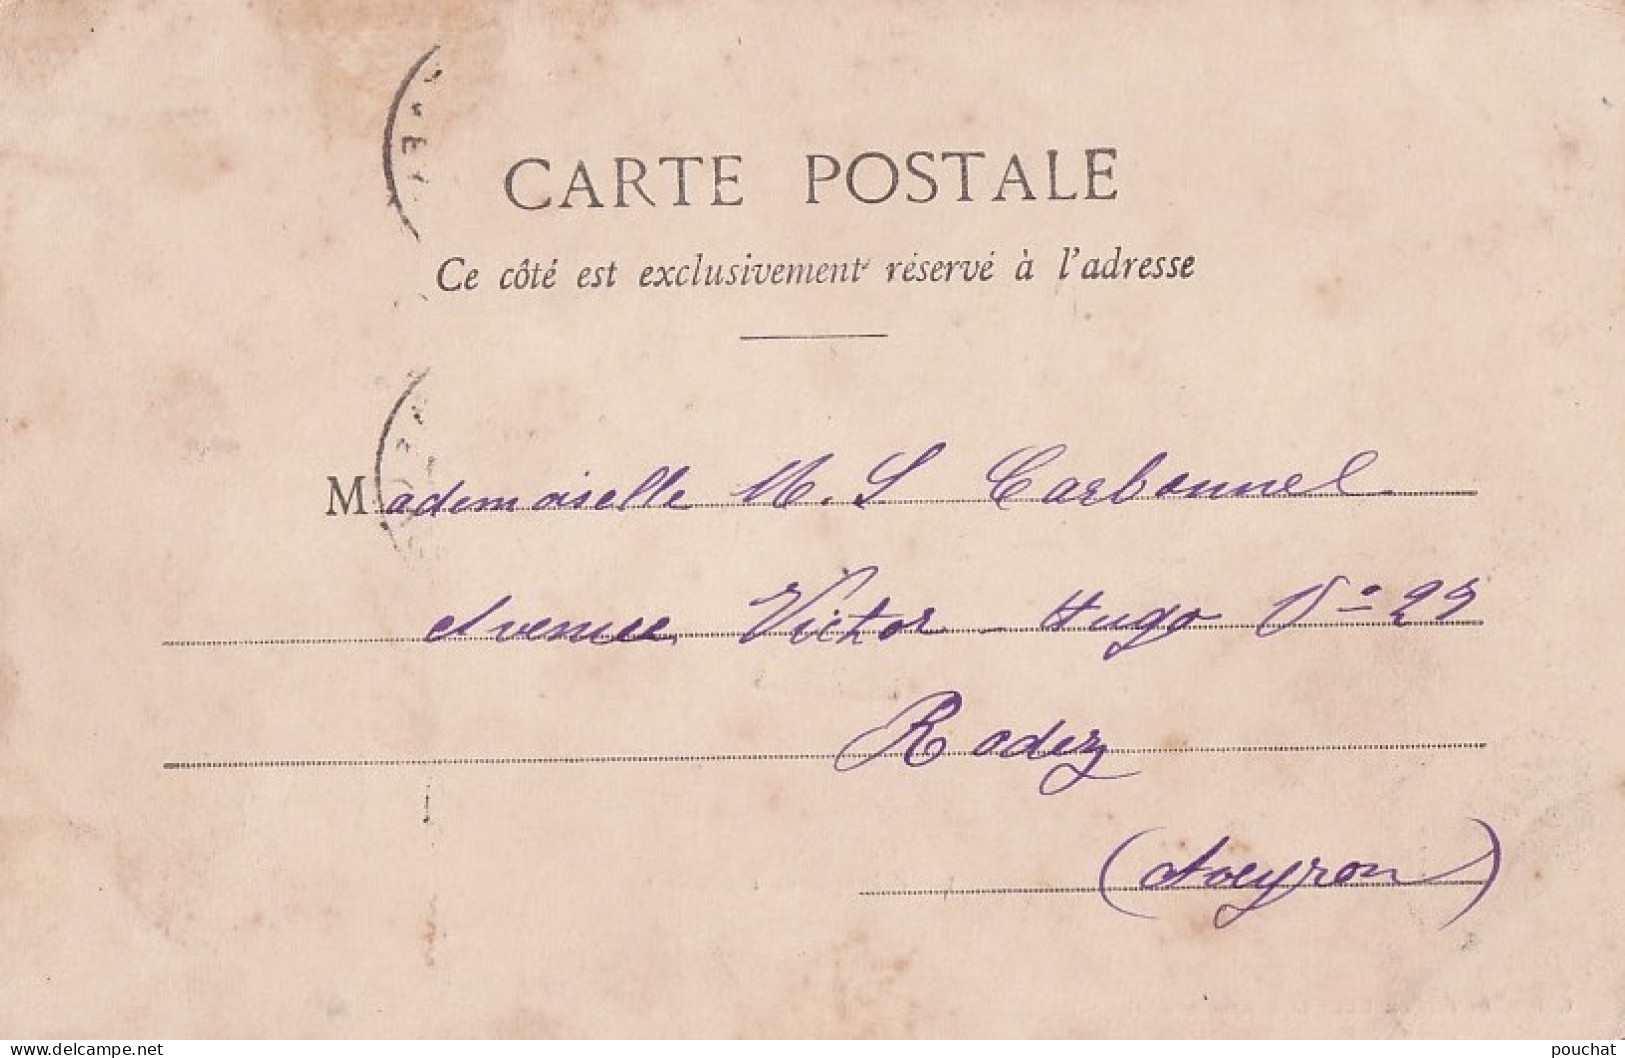 CARTE POSTALE
Ce côté est exclusivement réservé à l'adresse
Mademoiselle M. S Carbonnel
Avenue Victor-Hugo Nº
Rodez
(Aveyron)
delcampe.net
pouchat